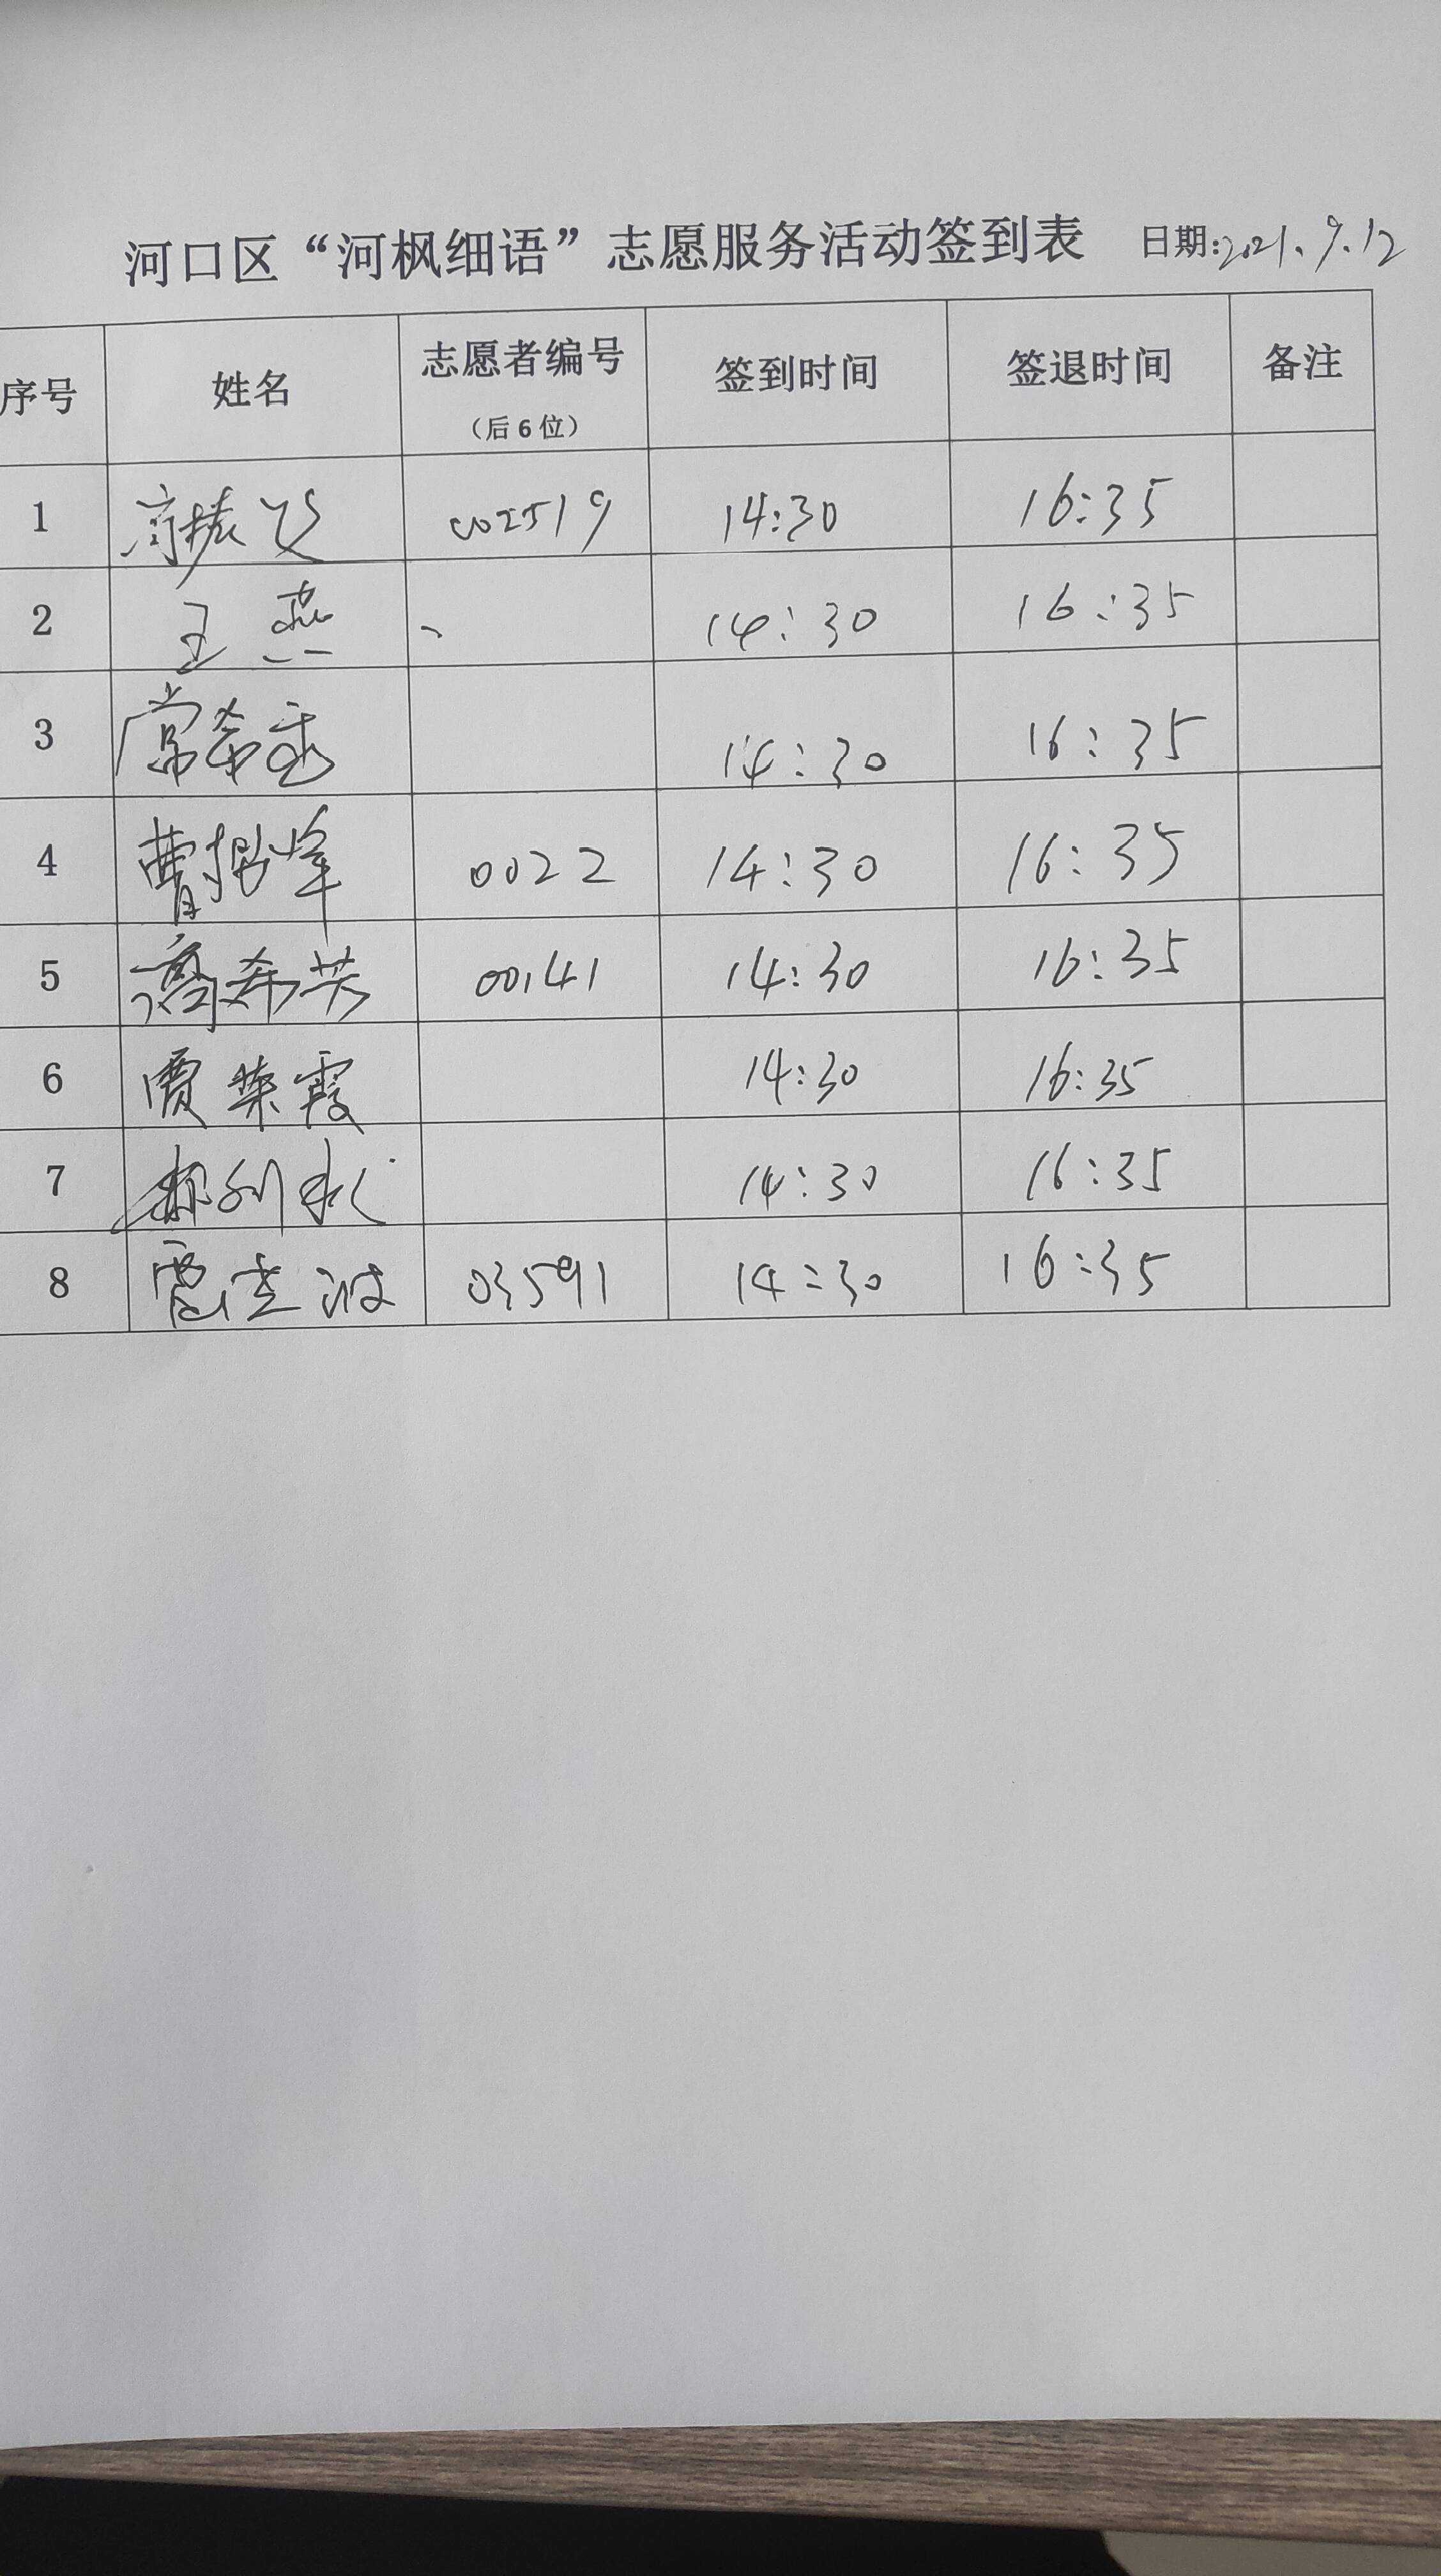 河口区“河枫细语”志愿服务活动签到表 日期:2021.9.12
序号 姓名 志愿者编号 签到时间 签退时间 备注
（后6位）
1 002519 14:30 16:35
2 王燕 14:30 16:35
3 14:30 16:35
4 曹 峰 0022 14:30 16:35
5 高希芳 00141 14:30 16:35
6 贾荣霞 14:30 16:35
7 14:30 16:35
8 03591 14:30 16:35